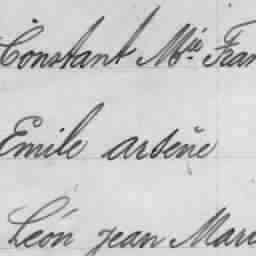 Constant Mie Fran
Emile arsène
Léon jean Marie